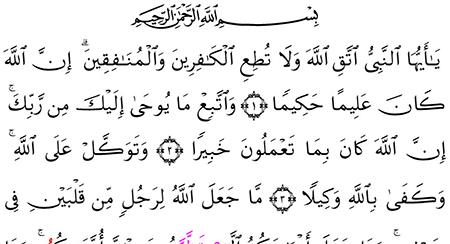 بِسْمِ اللَّهِ الرَّحْمَٰنِ الرَّحِيمِ
يَٰٓأَيُّهَا النَّبِيُّ اتَّقِ اللَّهَ وَلَا تُطِعِ الْكَٰفِرِينَ وَالْمُنَٰفِقِينَ ۗ إِنَّ اللَّهَ
كَانَ عَلِيمًا حَكِيمًا ﴿١﴾ وَاتَّبِعْ مَا يُوحَىٰٓ إِلَيْكَ مِن رَّبِّكَ ۚ
إِنَّ اللَّهَ كَانَ بِمَا تَعْمَلُونَ خَبِيرًا ﴿٢﴾ وَتَوَكَّلْ عَلَى اللَّهِ ۚ
وَكَفَىٰ بِاللَّهِ وَكِيلًا ﴿٣﴾ مَّا جَعَلَ اللَّهُ لِرَجُلٍ مِّن قَلْبَيْنِ فِي